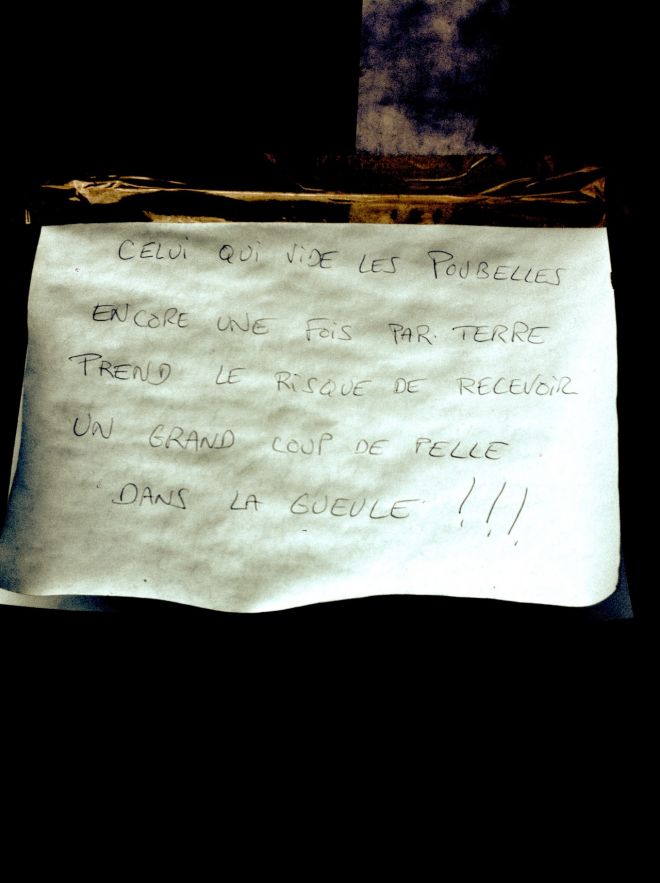 CELUI QUI VIDE LES POUBELLES
ENCORE UNE FOIS PAR TERRE
PREND LE RISQUE DE RECEVOIR
UN GRAND COUP DE PELLE
DANS LA GUEULE !!!